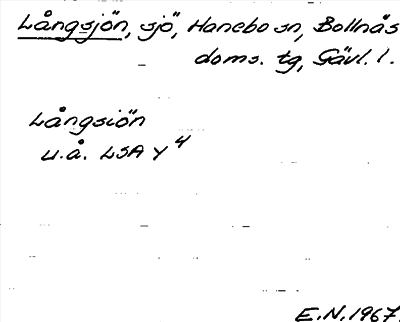 Långsjön, sjö, Hanebo sn, Bollnäs
doms. tg, Gävl. l.
Långsiön
u.å. LSA Y 4
E.N. 1967.